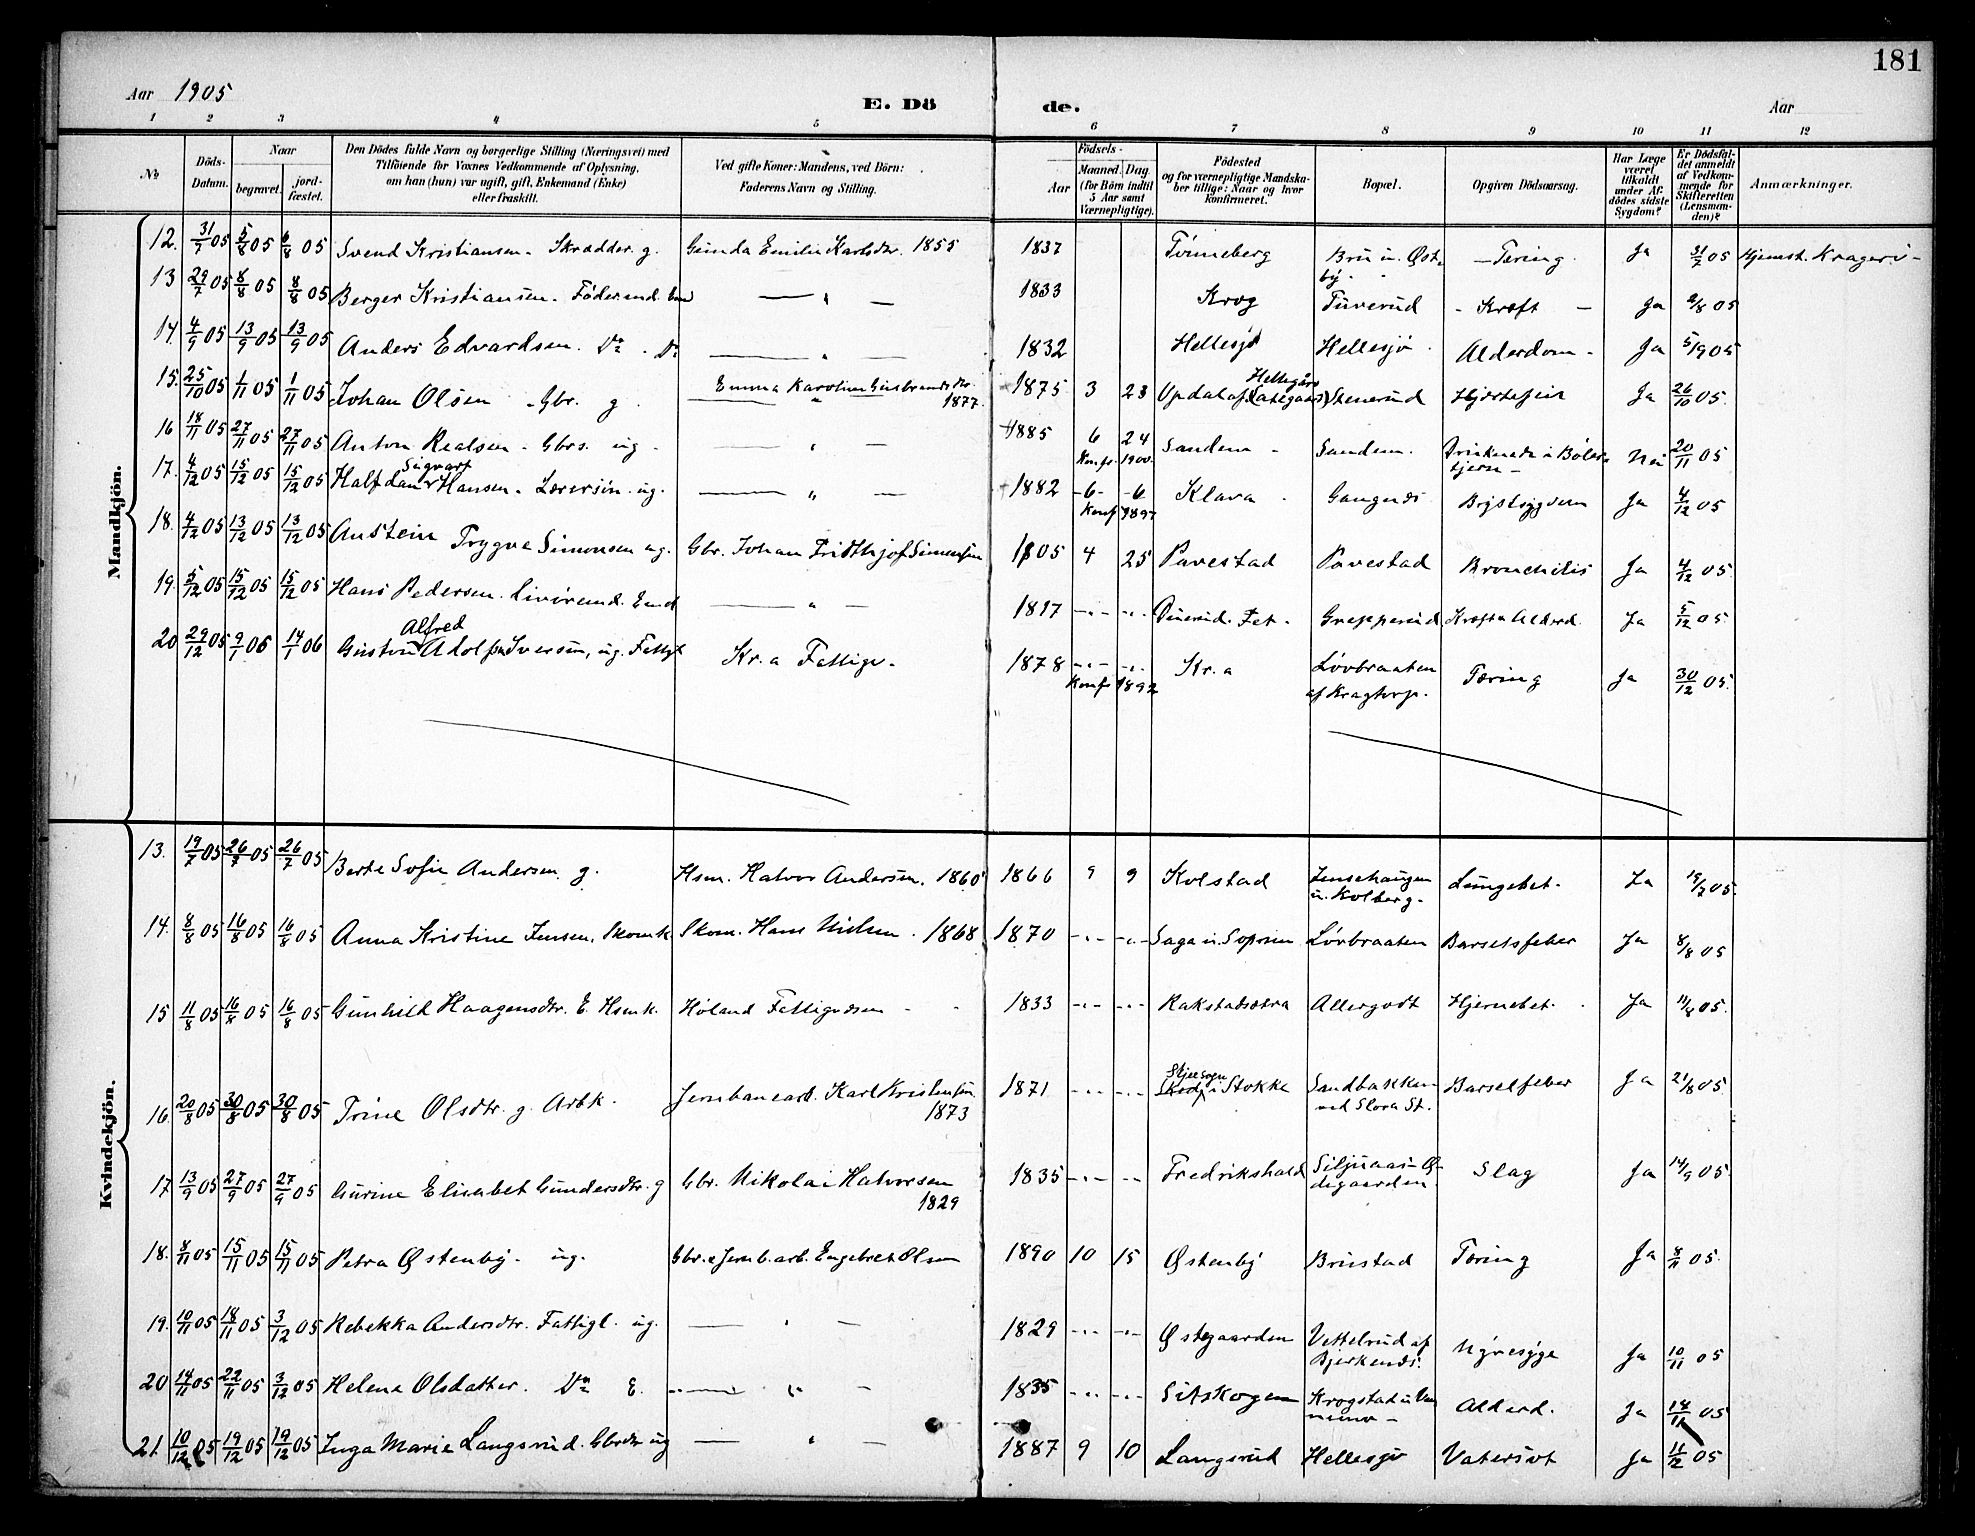 181
Aar 1905
E. Döde.
Aar
1 2 3 4 5 6 7 8 9 10 11 12
No
Döds-Datum.
Naar
begravet.
jordfæstet.
Den Dödes fulde Navn og borgerlige Stilling (Næringsvei) med Tilföiende for Voxnes Vedkommende af Oplysning, om han (hun) var ugift, gift, Enkemand (Enke) eller fraskilt.
Ved gifte Koner: Mandens, ved Börn: Faderens Navn og Stilling.
Födsels-
Aar
Maaned. Dag
(for Börn indtil 5 Aar samt Værnepligtige).
Födested og for værnepligtige Mandskaber tillige: Naar og hvor konfirmeret.
Bopæl.
Opgiven Dödsaarsag.
Har Læge været tilkaldt under Afdödes sidste Sygdom?
Er Dödsfaldet anmeldt af Vedkommende for Skifteretten (Lensmanden)?
Anmærkninger.
Mandkjön.
12. 31/7 05 5/8 05 6/8 05 Svend Kristiansen - Skrædder. g. Gunda Emilie Karlsdtr. 1855 1837 Tvinneberg Bru u. Østby - Tæring. Ja 31/7 05 Hjemst. Kragerø -
13 29/7 05 8/8 05 8/8 05 Berger Kristiansen. Föderaad. Em — " — 1833 Krog Tuverud - Kræft — Ja 2/8 05
14. 4/9 05 13/9 05 13/9 05 Anders Edvardsen. Do . Do — " — 1832 Hellesjø Hellesjø . Alderdom - Ja 5/9 05
15. 25/10 05 1/11 05 1/11 05 Johan Olsen - Gbr. g. Emma Karoline Gulbrandsdtr. 1877. 1875 3 23 Updal af Hellegårs (Lategaars) Stenerud Hjertefeil Ja 26/10 05.
16 18/11 05 27/11 05 27/11 05 Anton Realsen - Gbrs. ug - — " — 1885 6 24 Konf. 1900. Sandem - Sandem. Druknede i Bølertjern - Nei 20/11 05
17. 4/12 05 15/12 05 15/12 05 Halfdan Sigvart Hansen - Lærersøn. ug. — " — 1882 -6- -6 Konf 1897 Klava - Gangnæs Brystsygdom Ja 4/12 05
18. 4/12 05 13/12 05 13/12 05 Austein Trygve Simonsen ug. Gbr. Johan Fridthjof Simonsen 1905 4 25 Pavestad Pavestad Bronchitis Ja 4/12 05.
19. 5/12 05 15/12 05 15/12 05 Hans Pedersen. Livøremd. Emd — " — 1817 -"- -"- Fet - Grepperud Kræft & Alderd. Ja 5/12 05.
20 29/12 05 9/1 06 14/1 06 Gustav Alfred Adolph Iversen, ug. Fattigl Kr.a Fattigv. 1878 -"- -"- Konf. 1892 Kr.a Løvbraaten af Kragtorp. Tæring Ja 30/12 05.
Kvindekjön.
13. 19/7 05 26/7 05 26/7 05 Berte Sofie Andersen g. Hsm. Halvor Andersen. 1860 1866 9 9 Kolstad Jensehaugen u. Kolberg - Lungebet. Ja 19/7 05
14. 8/8 05 16/8 05 16/8 05 Anna Kristine Jensen, Skomk Skom. Hans Nielsen . 1868 1870 -"- -"- Saga u. Soprim Løvbraaten Barselsfeber Ja 8/8 05
15 11/8 05 16/8 05 16/8 05 Gunhild Haagensdtr. E. Hsmk. Høland Fattigvæsen 1833 -"- -"- Rakstadsætra Allergodt Hjernebet. Ja 11/8 05.
16. 20/8 05 30/8 05 30/8 05 Trine Olsdtr. g. Arbk. Jernbanearb. Karl Kristensen 1873 1871 -"- -"- i Stokke Sandbakken ved Slora St. Barselfeber Ja 21/8 05
17 13/9 05 27/9 05 27/9 05 Gurine Elisabet Gundersdtr. g Gbr. Nikolai Halvorsen 1829 1835 -"- -"- Fredrikshald Siljuaas-Ødegaarden Slag Ja 14/9 05.
18. 8/11 05 15/11 05 15/11 05 Petra Østenby. ug. Gbr. & Jernb.arb. Engebret Olsen 1890 10 15 Østenby Brustad Tæring Ja 8/11 05.
19. 10/11 05 18/11 05 3/12 05 Rebekka Andersdtr. Fattigl. ug. — " — 1829 -"- -"- Østgaarden Vettelrud af Bjerkenæs. Nyresyge Ja 10/11 05
20 14/11 05 22/11 05 3/12 05 Helene Olsdatter. Do E. — " — 1835 -"- -"- Sitskogen Krogstad u. Alderd. Ja 18/11 05
21. 10/12 05 19/12 05 19/12 05 Inga Marie Langsrud. Gbrdtr ug — " — 1887 9 10 Langsrud Hellesjø Vatersot Ja 11/12 05